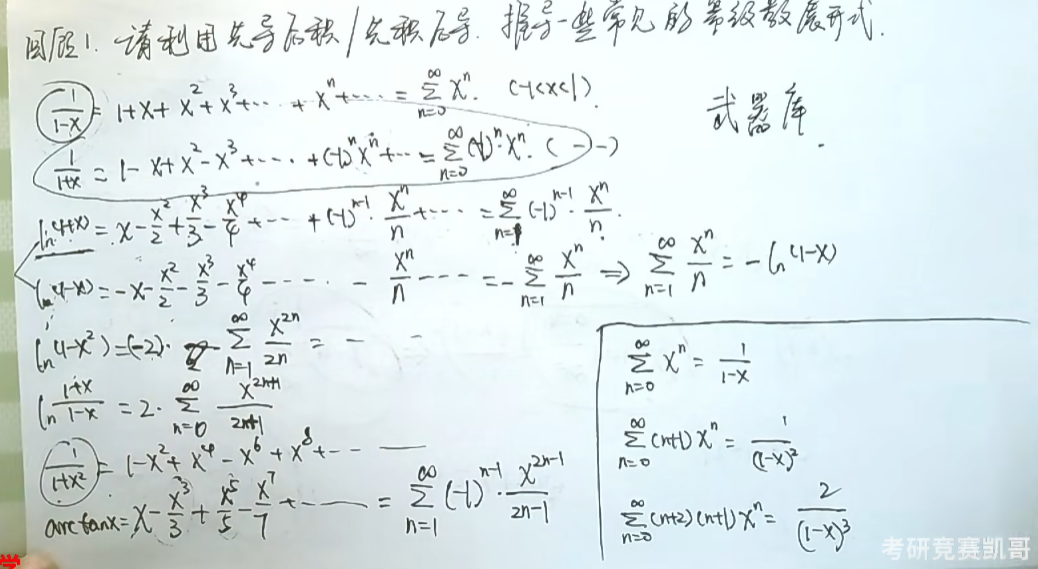 回顾1. 请利用先导后积/先积后导. 推导一些常见的幂级数展开式.
武器库.
1/(1-x) = 1+x+x²+x³+⋯+xⁿ+⋯ = ∑_{n=0}^{∞} xⁿ. (-1<x<1).
1/(1+x) = 1-x+x²-x³+⋯+(-1)ⁿxⁿ+⋯ = ∑_{n=0}^{∞} (-1)ⁿ·xⁿ. (--)
ln(1+x) = x-x²/2+x³/3-x⁴/4+⋯+(-1)ⁿ⁻¹·xⁿ/n+⋯ = ∑_{n=1}^{∞} (-1)ⁿ⁻¹·xⁿ/n.
ln(1-x) = -x-x²/2-x³/3-x⁴/4-⋯-xⁿ/n-⋯ = -∑_{n=1}^{∞} xⁿ/n ⇒ ∑_{n=1}^{∞} xⁿ/n = -ln(1-x)
ln(1-x²) = (-2)·∑_{n=1}^{∞} x²ⁿ/2n = - -
ln (1+x)/(1-x) = 2·∑_{n=0}^{∞} x²ⁿ⁺¹/(2n+1)
1/(1+x²) = 1-x²+x⁴-x⁶+x⁸+⋯
arctanx = x-x³/3+x⁵/5-x⁷/7+⋯ = ∑_{n=1}^{∞} (-1)ⁿ⁻¹·x²ⁿ⁻¹/(2n-1)
∑_{n=0}^{∞} xⁿ = 1/(1-x)
∑_{n=0}^{∞} (n+1)xⁿ = 1/(1-x)²
∑_{n=0}^{∞} (n+2)(n+1)xⁿ = 2/(1-x)³
学
考研竞赛凯哥